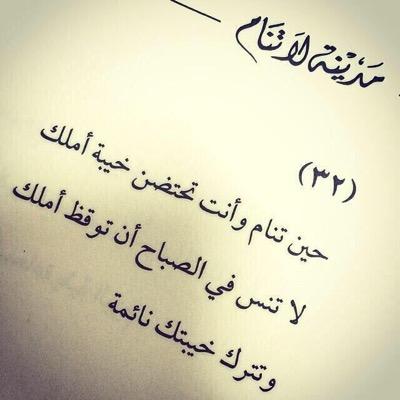 مَدِيْنَة لَا تَنَام
(٣٢)
حين تنام وأنت تحتضن خيبة أملك
لا تنس في الصباح أن توقظ أملك
وتترك خيبتك نائمة